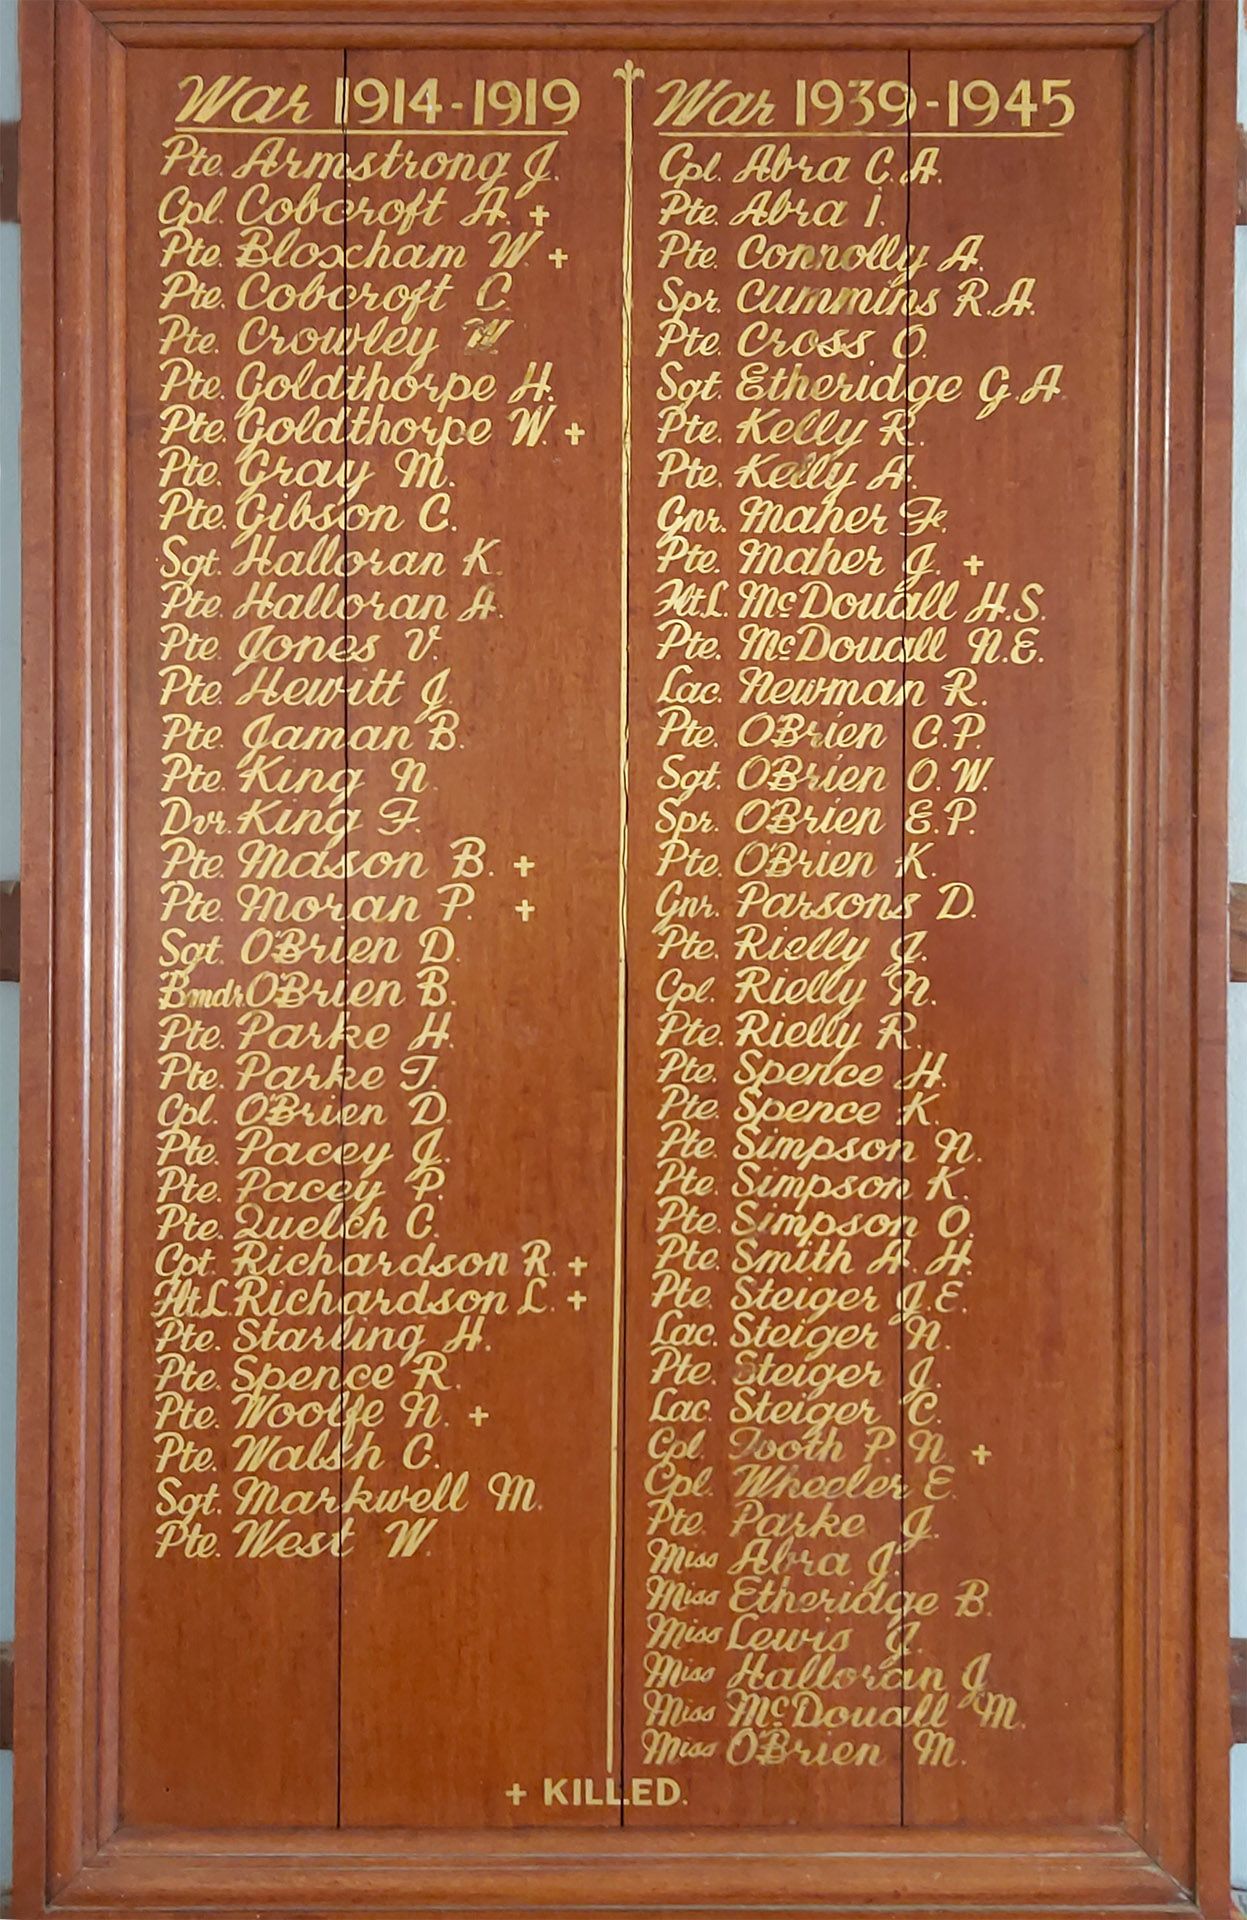 War 1914-1919
Pte. Armstrong J.
Cpl. Cobcroft A. +
Pte. Bloxcham W. +
Pte. Cobcroft C
Pte. Crowley
Pte. Goldthorpe H.
Pte. Goldthorpe W. +
Pte. Gray M.
Pte. Gibson C.
Sgt. Halloran K.
Pte. Halloran A.
Pte. Jones V.
Pte. Hewitt J.
Pte. Jaman B.
Pte. King N.
Dvr. King F.
Pte. Mason B. +
Pte. Moran P. +
Sgt. O'Brien D.
Bmdr. O'Brien B.
Pte. Parke H.
Pte. Parke T.
Cpl. O'Brien D.
Pte. Pacey J.
Pte. Pacey P.
Pte. Quelch C.
Cpt. Richardson R. +
Flt.L. Richardson L. +
Pte. Starling H.
Pte. Spence R.
Pte. Woolfe N. +
Pte. Walsh C.
Sgt. Markwell M.
Pte. West W.
War 1939-1945
Cpl. Abra C.A.
Pte. Abra I.
Pte. Connolly A.
Spr. Cummins R.A.
Pte. Cross. O.
Sgt. Etheridge G.A.
Pte. Kelly R.
Pte. Kelly A.
Gnr. Maher Fe.
Pte. Maher J. +
Flt.L. McDouall H.S.
Pte. McDouall N.E.
Lac. Newman R.
Pte. O'Brien C.P.
Sgt. O'Brien O.W.
Spr. O'Brien E.P.
Pte. O'Brien K.
Gnr. Parsons D.
Pte. Rielly J.
Cpl. Rielly N.
Pte. Rielly R.
Pte. Spence H.
Pte. Spence K.
Pte. Simpson N.
Pte. Simpson K.
Pte. Simpson O.
Pte. Smith A.H.
Pte. Steiger J.E.
Lac. Steiger N.
Pte. Steiger J.
Lac. Steiger C.
Cpl. Tooth P.N. +
Cpl. Wheeler E.
Pte. Parke J.
Miss Abra J.
Miss Etheridge B.
Miss Lewis J.
Miss Halloran J.
Miss McDouall M.
Miss O'Brien M.
+ KILLED.